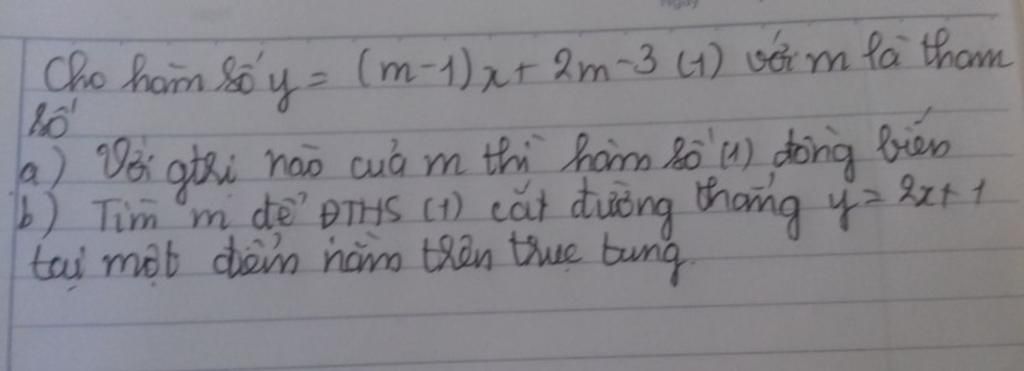 Cho hàm số y = (m-1)x + 2m-3 (1) với m là tham
số
a) Với gtri nào của m thì hàm số (1) đồng biến
b) Tìm m để ĐTHS (1) cắt đường thẳng y = 2x+1
tại một điểm nằm trên trục tung.